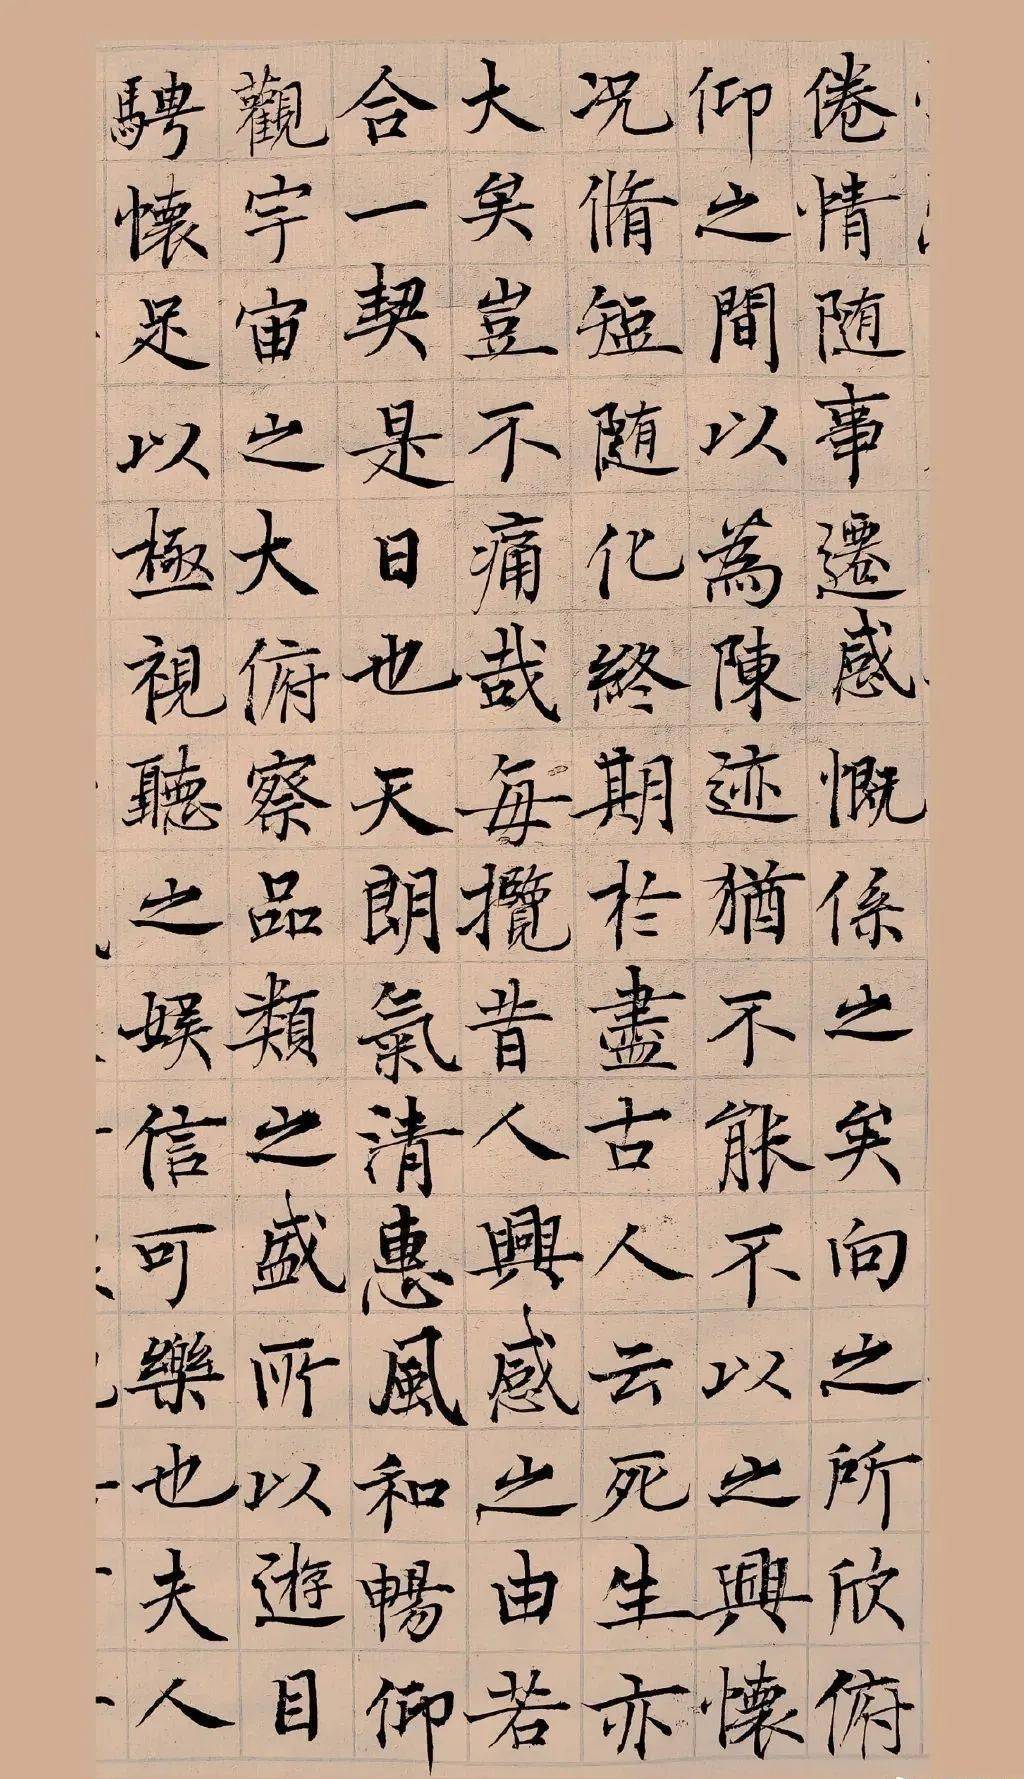 倦情随事遷感慨係之矣向之所欣俯
仰之間以為陳迹猶不能不以之興懷
况脩短随化終期於盡古人云死生亦
大矣豈不痛哉每攬昔人興感之由若
合一契是日也天朗氣清惠風和暢仰
觀宇宙之大俯察品類之盛所以遊目
騁懷足以極視聽之娱信可樂也夫人